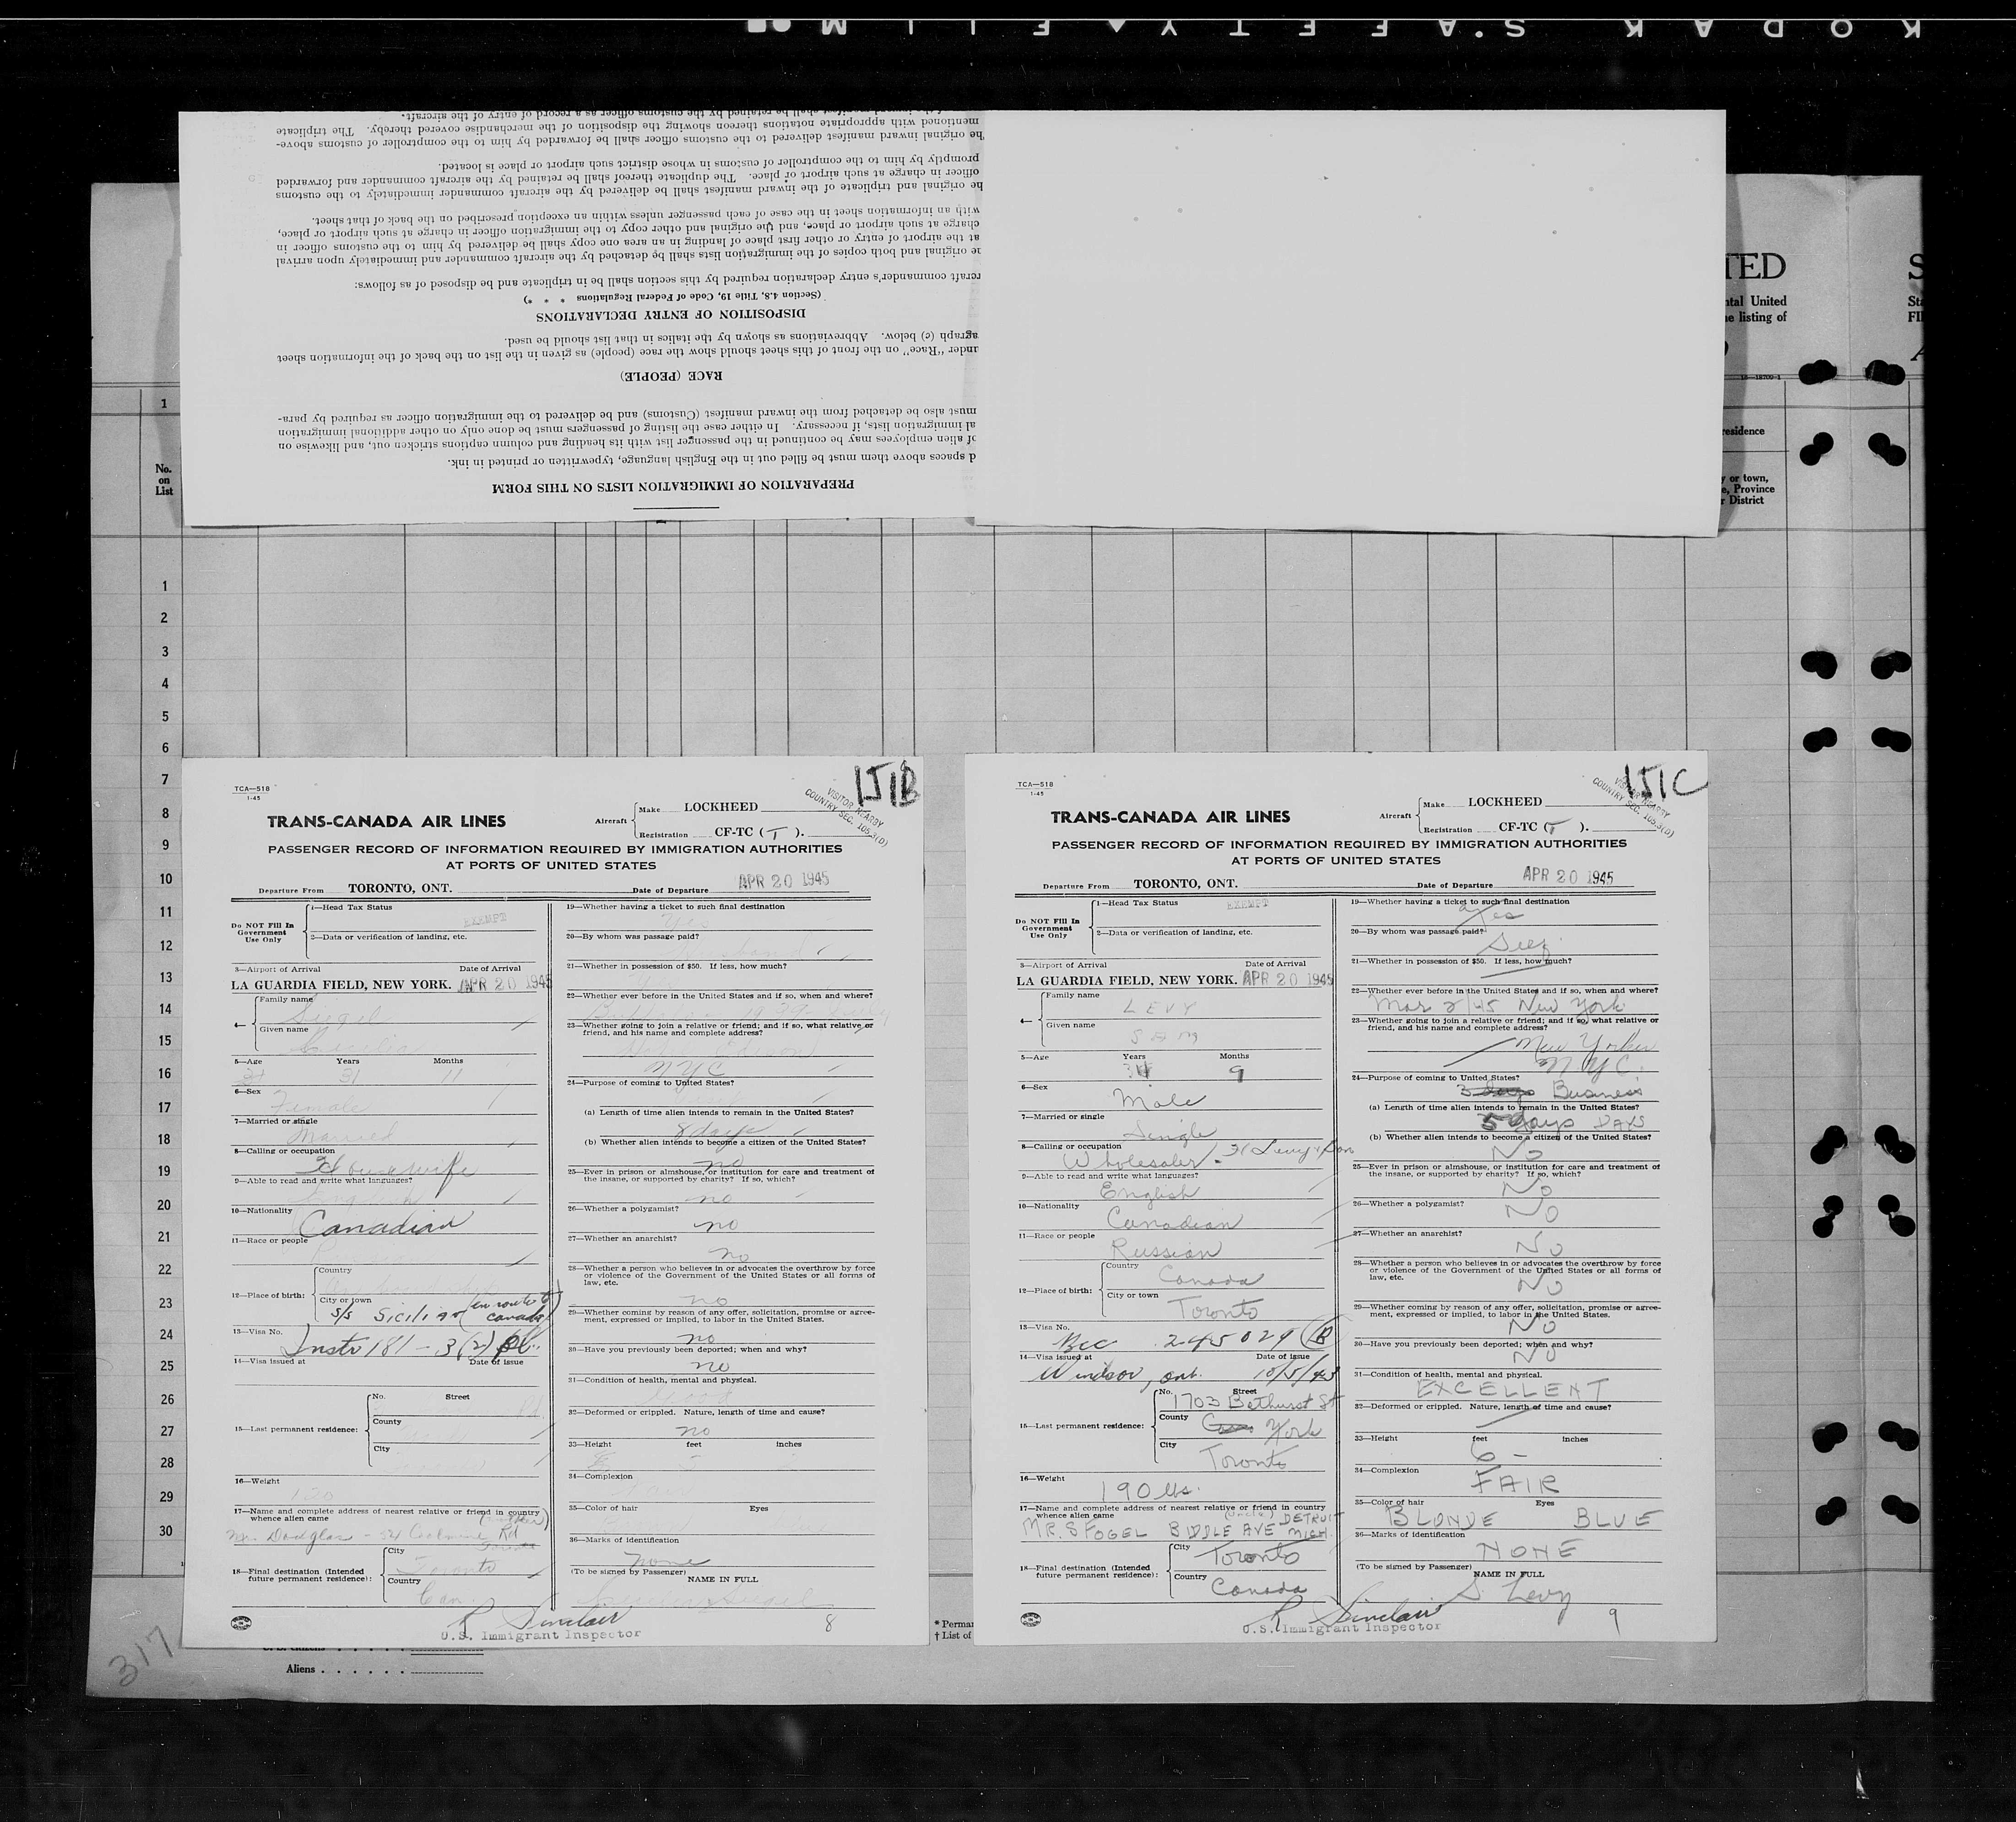 KODAK S.AFETY▲FILM
PREPARATION OF IMMIGRATION LISTS ON THIS FORM
d spaces above them must be filled out in the English language, typewritten or printed in ink.
of alien employees may be continued in the passenger list with its heading and column captions stricken out, and likewise on
al immigration lists, if necessary. In either case the listing of passengers must be done only on other additional immigration
must also be detached from the inward manifest (Customs) and be delivered to the immigration officer as required by para-
RACE (PEOPLE)
under "Race" on the front of this sheet should show the race (people) as given in the list on the back of the information sheet
agraph (c) below. Abbreviations as shown by the italics in that list should be used.
DISPOSITION OF ENTRY DECLARATIONS
(Section 4.8, Title 19, Code of Federal Regulations * * *)
rcraft commander's entry declaration required by this section shall be in triplicate and be disposed of as follows:
he original and both copies of the immigration lists shall be detached by the aircraft commander and immediately upon arrival
at the airport of entry or other first place of landing in an area one copy shall be delivered by him to the customs officer in
charge at such airport or place, and the original and other copy to the immigration officer in charge at such airport or place,
with an information sheet in the case of each passenger unless within an exception prescribed on the back of that sheet.
he original and triplicate of the inward manifest shall be delivered by the aircraft commander immediately to the customs
officer in charge at such airport or place. The duplicate thereof shall be retained by the aircraft commander and forwarded
promptly by him to the comptroller of customs in whose district such airport or place is located.
he original inward manifest delivered to the customs officer shall be forwarded by him to the comptroller of customs above-
mentioned with appropriate notations thereon showing the disposition of the merchandise covered thereby. The triplicate
shall be retained by the customs officer as a record of entry of the aircraft.
TED
ntal United
he listing of
esidence
y or town,
e, Province
r District
S
Sta
FI
1
No.
on
List
1
2
3
4
5
6
7
8
9
10
11
12
13
14
15
16
17
18
19
20
21
22
23
24
25
26
27
28
29
30
TCA—518
1-45
151B
VISITOR NEARBY
COUNTRY SEC. 105.3(D)
TRANS-CANADA AIR LINES
Aircraft
Make LOCKHEED
Registration CF-TC ( T ).
PASSENGER RECORD OF INFORMATION REQUIRED BY IMMIGRATION AUTHORITIES
AT PORTS OF UNITED STATES
Departure From TORONTO, ONT. Date of Departure APR 20 1945
Do NOT Fill In
Government
Use Only
1—Head Tax Status EXEMPT
2—Data or verification of landing, etc.
3—Airport of Arrival Date of Arrival
LA GUARDIA FIELD, NEW YORK. APR 20 1945
4—
Family name Siegel
Given name
5—Age Years Months
31 11
6—Sex
Female
7—Married or single
Married
8—Calling or occupation
Housewife
9—Able to read and write what languages?
English
10—Nationality
Canadian
11—Race or people
12—Place of birth:
Country
City or town
S/S Sicilian (en route to Canada)
13—Visa No.
Instr 181 - 3(2)
14—Visa issued at Date of issue
15—Last permanent residence:
No. Street
County
City
16—Weight
17—Name and complete address of nearest relative or friend in country
whence alien came
Mr. Douglas
18—Final destination (Intended
future permanent residence):
City Toronto
Country Can
19—Whether having a ticket to such final destination
Yes
20—By whom was passage paid?
21—Whether in possession of $50. If less, how much?
22—Whether ever before in the United States and if so, when and where?
23—Whether going to join a relative or friend; and if so, what relative or
friend, and his name and complete address?
NYC
24—Purpose of coming to United States?
(a) Length of time alien intends to remain in the United States?
8 days
(b) Whether alien intends to become a citizen of the United States?
no
25—Ever in prison or almshouse, or institution for care and treatment of
the insane, or supported by charity? If so, which?
no
26—Whether a polygamist?
no
27—Whether an anarchist?
no
28—Whether a person who believes in or advocates the overthrow by force
or violence of the Government of the United States or all forms of
law, etc.
no
29—Whether coming by reason of any offer, solicitation, promise or agree-
ment, expressed or implied, to labor in the United States.
no
30—Have you previously been deported; when and why?
no
31—Condition of health, mental and physical.
32—Deformed or crippled. Nature, length of time and cause?
no
33—Height feet inches
5
34—Complexion
35—Color of hair Eyes
36—Marks of identification
none
(To be signed by Passenger)
NAME IN FULL
R Sinclair
U.S. Immigrant Inspector
8
TCA—518
1-45
151C
VISITOR NEARBY
COUNTRY SEC. 105.3(D)
TRANS-CANADA AIR LINES
Aircraft
Make LOCKHEED
Registration CF-TC ( T ).
PASSENGER RECORD OF INFORMATION REQUIRED BY IMMIGRATION AUTHORITIES
AT PORTS OF UNITED STATES
Departure From TORONTO, ONT. Date of Departure APR 20 1945
Do NOT Fill In
Government
Use Only
1—Head Tax Status EXEMPT
2—Data or verification of landing, etc.
3—Airport of Arrival Date of Arrival
LA GUARDIA FIELD, NEW YORK. APR 20 1945
4—
Family name LEVY
Given name SAM
5—Age Years Months
34 9
6—Sex
Male
7—Married or single
Single
8—Calling or occupation
Wholesaler - Levy & Son
9—Able to read and write what languages?
English
10—Nationality
Canadian
11—Race or people
Russian
12—Place of birth:
Country Canada
City or town Toronto
13—Visa No.
Bcc 245029 (B)
14—Visa issued at Date of issue
Windsor, Ont. 10/5/43
15—Last permanent residence:
No. Street 1703 Bathurst St
County York
City Toronto
16—Weight
190 lbs.
17—Name and complete address of nearest relative or friend in country
whence alien came (uncle)
MR. S FOGEL BIDDLE AVE DETROIT MICH.
18—Final destination (Intended
future permanent residence):
City Toronto
Country Canada
19—Whether having a ticket to such final destination
Yes
20—By whom was passage paid?
Self
21—Whether in possession of $50. If less, how much?
22—Whether ever before in the United States and if so, when and where?
Mar 2/45 New York
23—Whether going to join a relative or friend; and if so, what relative or
friend, and his name and complete address?
New Yorker
N.Y.C.
24—Purpose of coming to United States?
3 days Business
(a) Length of time alien intends to remain in the United States?
5 days DAYS
(b) Whether alien intends to become a citizen of the United States?
No
25—Ever in prison or almshouse, or institution for care and treatment of
the insane, or supported by charity? If so, which?
No
26—Whether a polygamist?
No
27—Whether an anarchist?
No
28—Whether a person who believes in or advocates the overthrow by force
or violence of the Government of the United States or all forms of
law, etc.
No
29—Whether coming by reason of any offer, solicitation, promise or agree-
ment, expressed or implied, to labor in the United States.
No
30—Have you previously been deported; when and why?
No
31—Condition of health, mental and physical.
EXCELLENT
32—Deformed or crippled. Nature, length of time and cause?
33—Height feet inches
6 -
34—Complexion
FAIR
35—Color of hair Eyes
BLONDE BLUE
36—Marks of identification
NONE
(To be signed by Passenger)
NAME IN FULL
S. Levy
R Sinclair
U.S. Immigrant Inspector
9
317
Aliens . . . . . .
* Perma
† List of